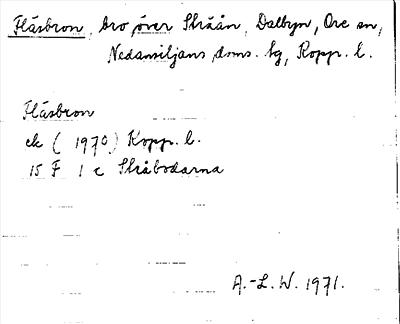 Fläsbron, bro över Skråån, Dalbyn, Ore sn,
Nedansiljans doms. tg, Kopp. l.
Fläsbron
ek (1970) Kopp. l.
15 F 1 c Skråbodarna
A.-L. W. 1971.